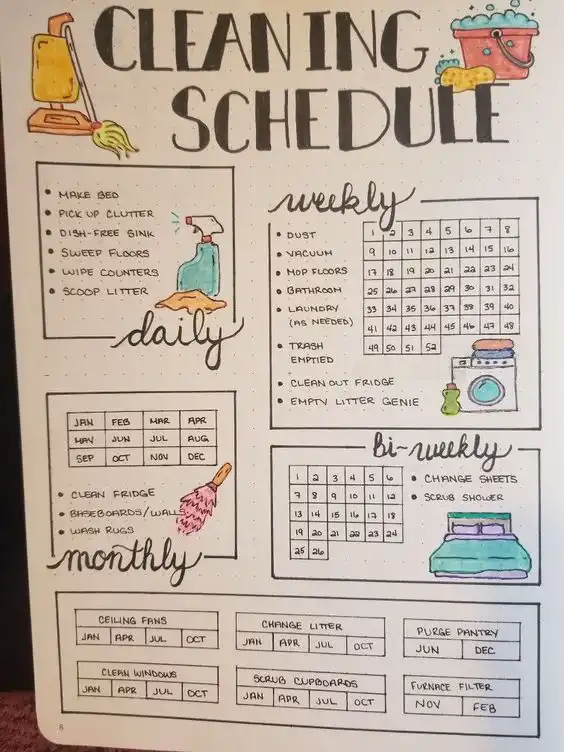 CLEANING
SCHEDULE
• MAKE BED
• PICK UP CLUTTER
• DISH-FREE SINK
• SWEEP FLOORS
• WIPE COUNTERS
• SCOOP LITTER
daily
weekly
• DUST
• VACUUM
• MOP FLOORS
• BATHROOM
• LAUNDRY
(AS NEEDED)
• TRASH
EMPTIED
• CLEAN OUT FRIDGE
• EMPTY LITTER GENIE
1 2 3 4 5 6 7 8
9 10 11 12 13 14 15 16
17 18 19 20 21 22 23 24
25 26 27 28 29 30 31 32
33 34 35 36 37 38 39 40
41 42 43 44 45 46 47 48
49 50 51 52
JAN FEB MAR APR
MAY JUN JUL AUG
SEP OCT NOV DEC
• CLEAN FRIDGE
• BASEBOARDS/WALLS
• WASH RUGS
monthly
bi-weekly
1 2 3 4 5 6
7 8 9 10 11 12
13 14 15 16 17 18
19 20 21 22 23 24
25 26
• CHANGE SHEETS
• SCRUB SHOWER
CEILING FANS
JAN APR JUL OCT
CHANGE LITTER
JAN APR JUL OCT
PURGE PANTRY
JUN DEC
CLEAN WINDOWS
JAN APR JUL OCT
SCRUB CUPBOARDS
JAN APR JUL OCT
FURNACE FILTER
NOV FEB